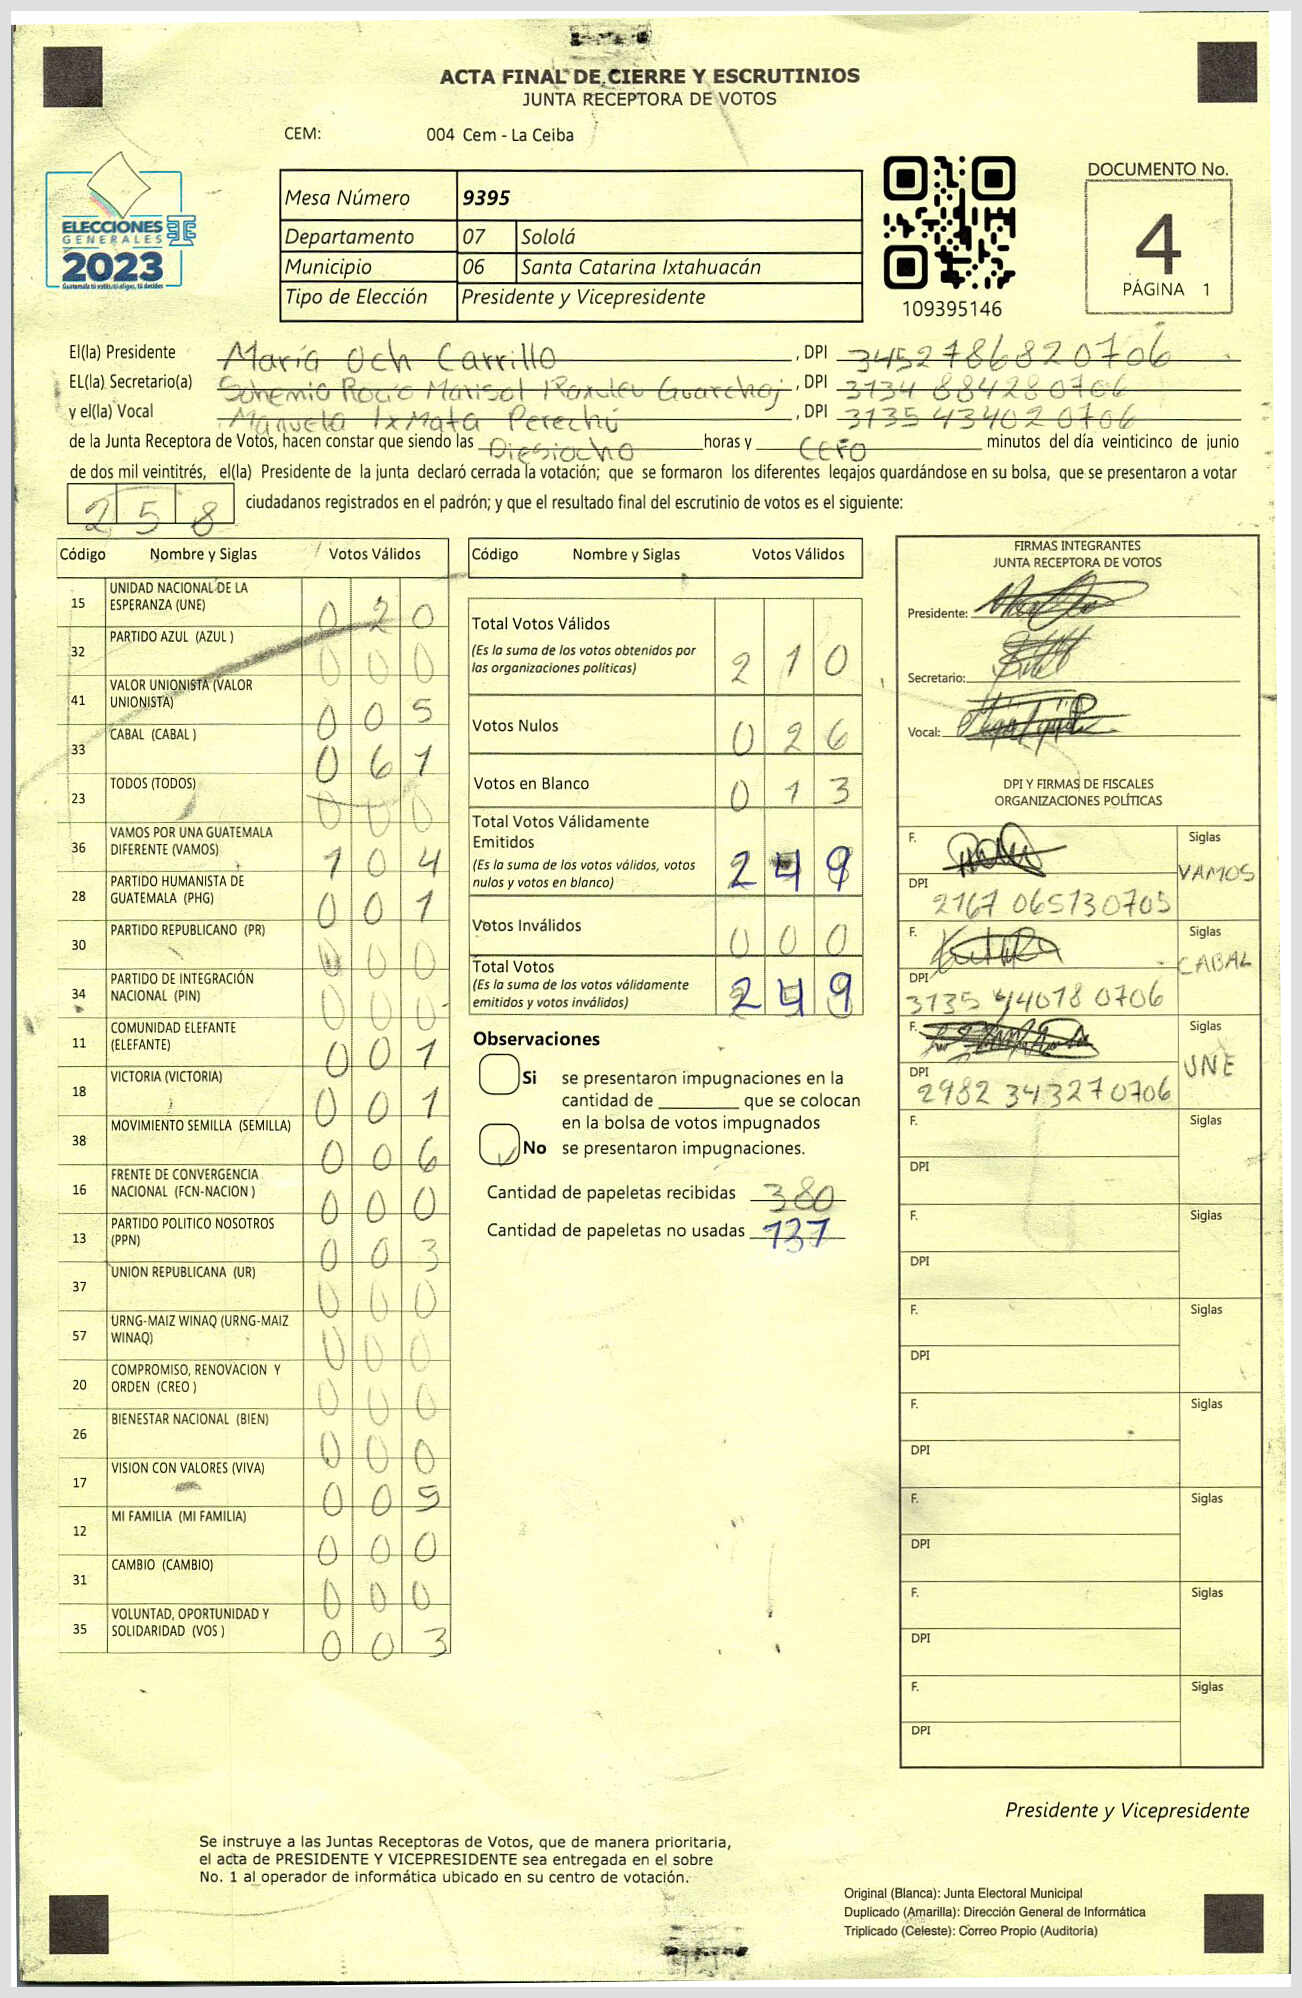 ACTA FINAL DE CIERRE Y ESCRUTINIOS
JUNTA RECEPTORA DE VOTOS
CEM: 004 Cem - La Ceiba
ELECCIONES
GENERALES
2023
Guatemala tú votas, tú eliges, tú decides
Mesa Número 9395
Departamento 07 Sololá
Municipio 06 Santa Catarina Ixtahuacán
Tipo de Elección Presidente y Vicepresidente
109395146
DOCUMENTO No.
4
PÁGINA 1
El(la) Presidente María Och Carrillo , DPI 3452786820706
EL(la) Secretario(a) Rocio Marisol Guarchaj , DPI 3134 884280706
y el(la) Vocal Manuela IxMata Perechú , DPI 3135 434020706
de la Junta Receptora de Votos, hacen constar que siendo las Diesiocho horas y cero minutos del día veinticinco de junio
de dos mil veintitrés, el(la) Presidente de la junta declaró cerrada la votación; que se formaron los diferentes legajos guardándose en su bolsa, que se presentaron a votar
258 ciudadanos registrados en el padrón; y que el resultado final del escrutinio de votos es el siguiente:
Código Nombre y Siglas Votos Válidos
15 UNIDAD NACIONAL DE LA ESPERANZA (UNE) 0 2 0
32 PARTIDO AZUL (AZUL ) 0 0 0
41 VALOR UNIONISTA (VALOR UNIONISTA) 0 0 5
33 CABAL (CABAL ) 0 6 1
23 TODOS (TODOS) 0 0 0
36 VAMOS POR UNA GUATEMALA DIFERENTE (VAMOS) 1 0 4
28 PARTIDO HUMANISTA DE GUATEMALA (PHG) 0 0 1
30 PARTIDO REPUBLICANO (PR) 0 0 0
34 PARTIDO DE INTEGRACIÓN NACIONAL (PIN) 0 0 0
11 COMUNIDAD ELEFANTE (ELEFANTE) 0 0 1
18 VICTORIA (VICTORIA) 0 0 1
38 MOVIMIENTO SEMILLA (SEMILLA) 0 0 6
16 FRENTE DE CONVERGENCIA NACIONAL (FCN-NACION ) 0 0 0
13 PARTIDO POLITICO NOSOTROS (PPN) 0 0 3
37 UNION REPUBLICANA (UR) 0 0 0
57 URNG-MAIZ WINAQ (URNG-MAIZ WINAQ) 0 0 0
20 COMPROMISO, RENOVACION Y ORDEN (CREO ) 0 0 0
26 BIENESTAR NACIONAL (BIEN) 0 0 0
17 VISION CON VALORES (VIVA) 0 0 5
12 MI FAMILIA (MI FAMILIA) 0 0 0
31 CAMBIO (CAMBIO) 0 0 0
35 VOLUNTAD, OPORTUNIDAD Y SOLIDARIDAD (VOS ) 0 0 3
Código Nombre y Siglas Votos Válidos
Total Votos Válidos 2 1 0
(Es la suma de los votos obtenidos por
las organizaciones políticas)
Votos Nulos 0 2 6
Votos en Blanco 0 1 3
Total Votos Válidamente
Emitidos 2 4 9
(Es la suma de los votos válidos, votos
nulos y votos en blanco)
Votos Inválidos 0 0 0
Total Votos 2 4 9
(Es la suma de los votos válidamente
emitidos y votos inválidos)
Observaciones
Si se presentaron impugnaciones en la
cantidad de ________ que se colocan
en la bolsa de votos impugnados
No se presentaron impugnaciones.
Cantidad de papeletas recibidas 380
Cantidad de papeletas no usadas 137
FIRMAS INTEGRANTES
JUNTA RECEPTORA DE VOTOS
Presidente:
Secretario:
Vocal:
DPI Y FIRMAS DE FISCALES
ORGANIZACIONES POLÍTICAS
F. Siglas VAMOS
DPI 2167 065130705
F. Siglas CABAL
DPI 3135 440180706
F. Siglas UNE
DPI 2982 343270706
F. Siglas
DPI
F. Siglas
DPI
F. Siglas
DPI
F. Siglas
DPI
F. Siglas
DPI
F. Siglas
DPI
F. Siglas
DPI
Presidente y Vicepresidente
Se instruye a las Juntas Receptoras de Votos, que de manera prioritaria,
el acta de PRESIDENTE Y VICEPRESIDENTE sea entregada en el sobre
No. 1 al operador de informática ubicado en su centro de votación.
Original (Blanca): Junta Electoral Municipal
Duplicado (Amarilla): Dirección General de Informática
Triplicado (Celeste): Correo Propio (Auditoría)